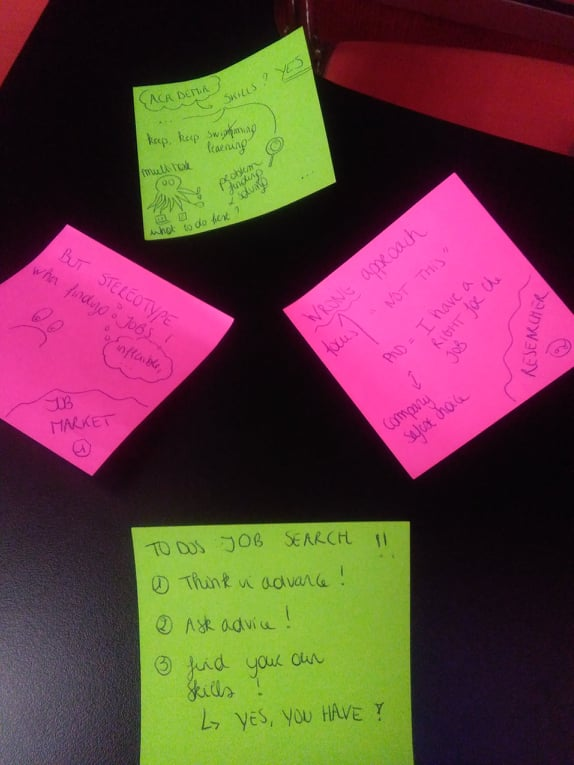 ACADEMIA
SKILLS? YES
...
keep, keep swimming
learning
multi-task
problem
finding
& solving
...
what to do here?
BUT STEREOTYPE
when finding JOBS!
inflexible,
...
JOB
MARKET
1
WRONG approach
focus
"NOT THIS"
PhD = I have a
RIGHT for the
JOB
company
safest choice
RESEARCHER
2
TO DOS JOB SEARCH !!
1 Think in advance!
2 Ask advice!
3 find your own
skills!
↳ YES, YOU HAVE!